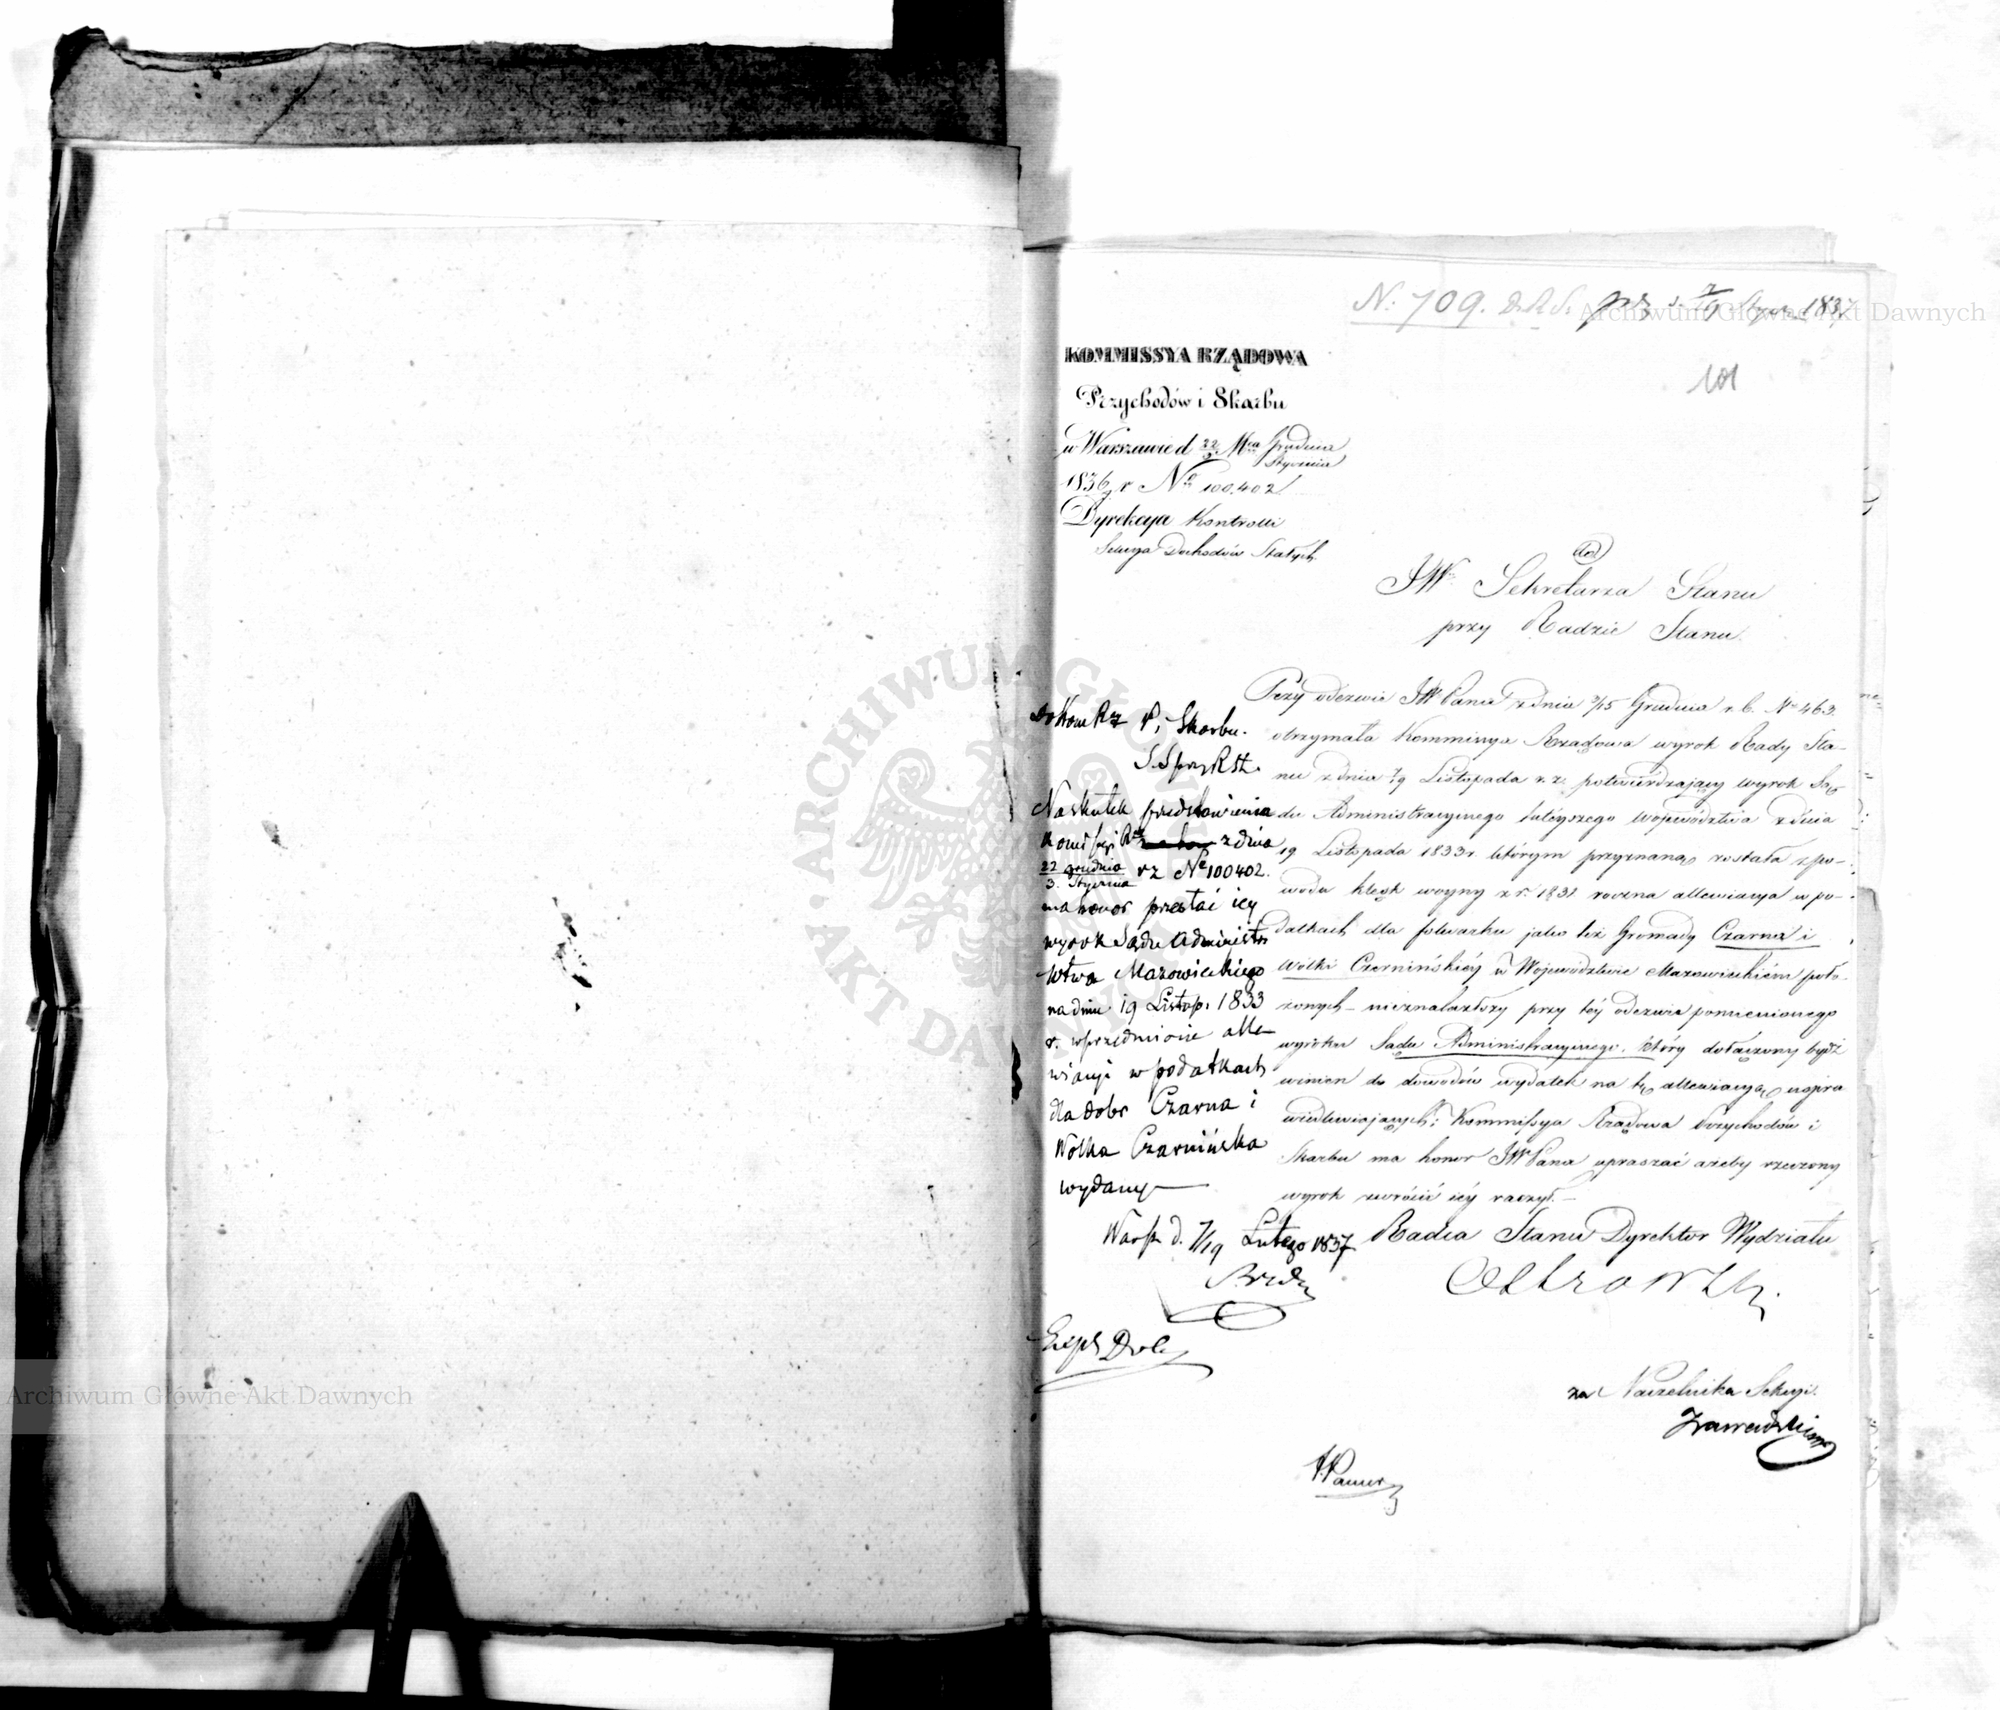 N: 709. D.R.S. 1837
101
KOMMISSYA RZĄDOWA
Przychodów i Skarbu
w Warszawie d 22/3 Mca Grudnia
Stycznia
1836/7 r No 100,402.
Dyrekcya Kontrolli
Sekcya Dochodów Stałych
do
JW. Sekretarza Stanu
przy Radzie Stanu.
Przy odezwie JWPana z dnia 3/15 Grudnia r. b. No 463.
otrzymała Kommissya Rządowa wyrok Rady Sta-
nu z dnia 7/19 Listopada r. z. potwierdzający wyrok Są-
du Administracyjnego tutéyszego Województwa z dnia
19 Listopada 1833 r. którym przyznaną została z po-
wodu klęsk woyny z r. 1831 roczna allewiacya w po-
datkach dla folwarku jako też Gromady Czarna i
Wólki Czernińskiéy w Województwie Mazowieckiém poło-
żonych – nieznalazłszy przy téy odezwie pomienionego
wyroku Sądu Administracyjnego, który dołączony bydź
winien do dowodów wydatek na tę allewiacyą uspra
wiedliwiających; Kommissya Rządowa Przychodów i
Skarbu ma honor JWPana upraszać ażeby rzeczony
wyrok zwrócić iéy raczył. –
Radca Stanu Dyrektor Wydziału
Ostrowski
za Naczelnika Sekcyi.
Zawadzki
do Kom Rz P. i Skarbu.
S. S przy R St.
Na skutek przedstawienia
Komissyi Rz z dnia
22 grudnia
3. Stycznia
rz No 100402.
ma honor przesłać iey
wyrok Sądu Administr
Wtwa Mazowieckiego
na dniu 19 Listop. 1833
r. w przedmiocie alle-
wiacyi w podatkach
dla dobr Czarna i
Wolka Czarnińska
wydany –
Warsz d. 7/19 Lutego 1837
Archiwum Główne Akt Dawnych
Archiwum Główne Akt Dawnych
ARCHIWUM GŁÓWNE AKT DAWNYCH